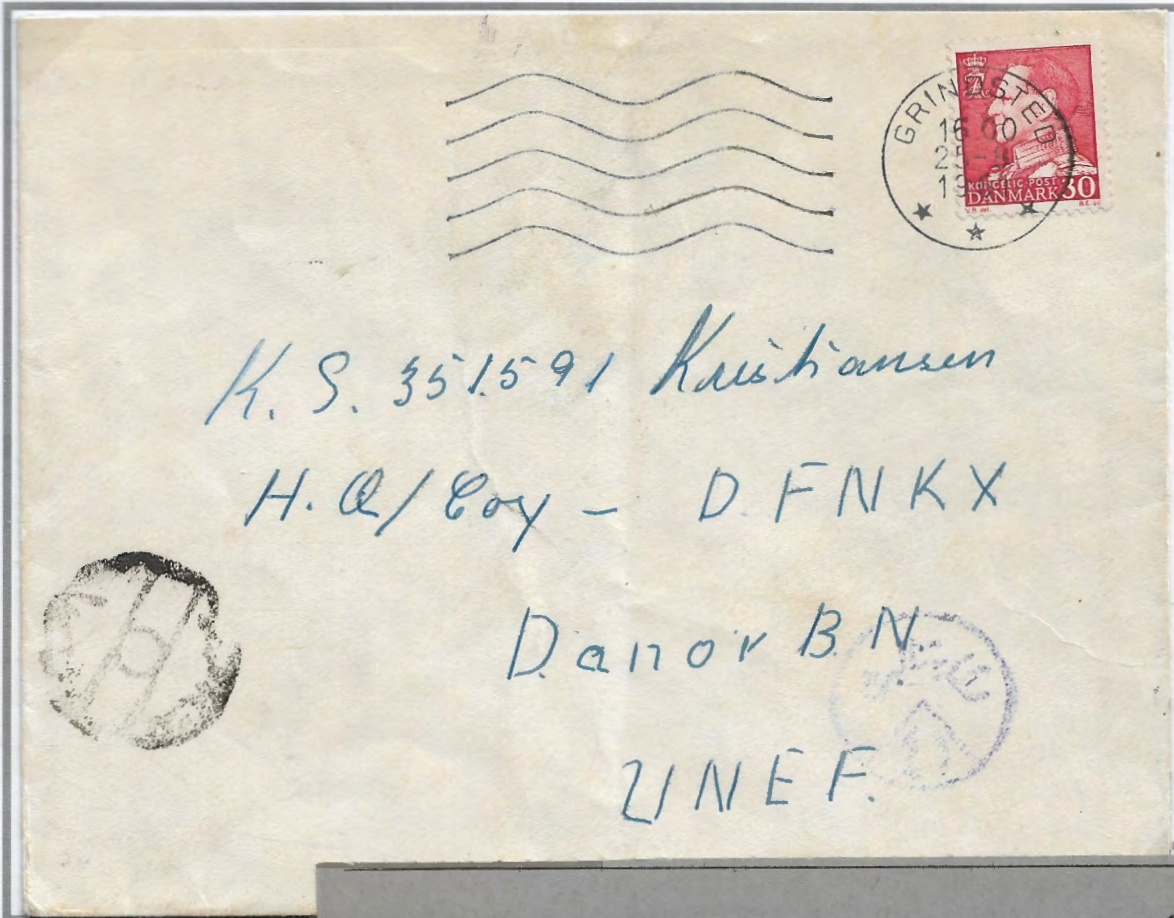 GRINDSTED
16 00
KONGELIG POST
DANMARK 30
K. S. 351591 Kristiansen
H.Q/Coy - D.F N K X
Danor B.N.
UNEF.